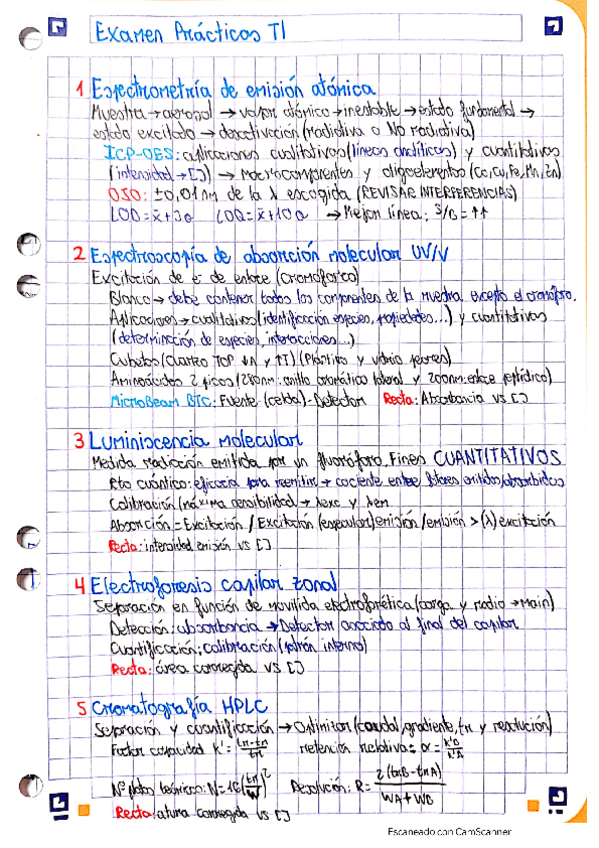 Examen Prácticas TI
1 Espectrometría de emisión atómica
Muestra → aerosol → vapor atómico → inestable → estado fundamental →
estado excitado → desactivación (radiativa o No radiativa)
ICP-OES: aplicaciones cualitativas (líneas analíticas) y cuantitativas
(intensidad → []) → Macrocomponentes y oligoelementos (Ca, Cu, Fe, Mn, Zn)
OJO: ±0,01 nm de la λ escogida (REVISAR INTERFERENCIAS)
LOD = x̄ + 3σ LOQ = x̄ + 10σ → Mejor línea: S/B = ↑↑
2 Espectroscopía de absorción molecular UV/V
Excitación de e⁻ de enlace (cromóforo)
Blanco → debe contener todos los componentes de la muestra excepto el cromóforo.
Aplicaciones → cualitativas (identificación especies, propiedades...) y cuantitativas
(determinación de especies, interacciones...)
Cubetas (Cuarzo TOP ↓λ y ↑T) (Plástico y vidrio peores)
Aminoácidos 2 picos (280nm: anillo aromático lateral y 200nm: enlace peptídico)
MicroBeam BTC: Fuente-(celda)-Detector Recta: Absorbancia vs []
3 Luminiscencia Molecular
Medida radiación emitida por un fluoróforo. Fines CUANTITATIVOS
Rto cuántico: eficacia para reemitir → cociente entre fotones emitidos/absorbidos
Calibración (máxima sensibilidad) → λexc y λem
Absorción = Excitación / Excitación (especular) emisión / emisión > (λ) excitación
Recta: intensidad emisión vs []
4 Electroforesis capilar zonal
Separación en función de movilidad electroforética (carga y radio → Main)
Detección: absorbancia → Detector asociado al final del capilar
Cuantificación: calibración (patrón interno)
Recta: área corregida vs []
5 Cromatografía HPLC
Separación y cuantificación → Optimizar (caudal, gradiente, tR y resolución)
Factor capacidad k' = retención relativa: α = k'B/k'A
Nº platos teóricos: N = 16 (tR/W)² Resolución: R = 2(tRB - tRA)/WA + WB
Recta: altura corregida vs []
Escaneado con CamScanner